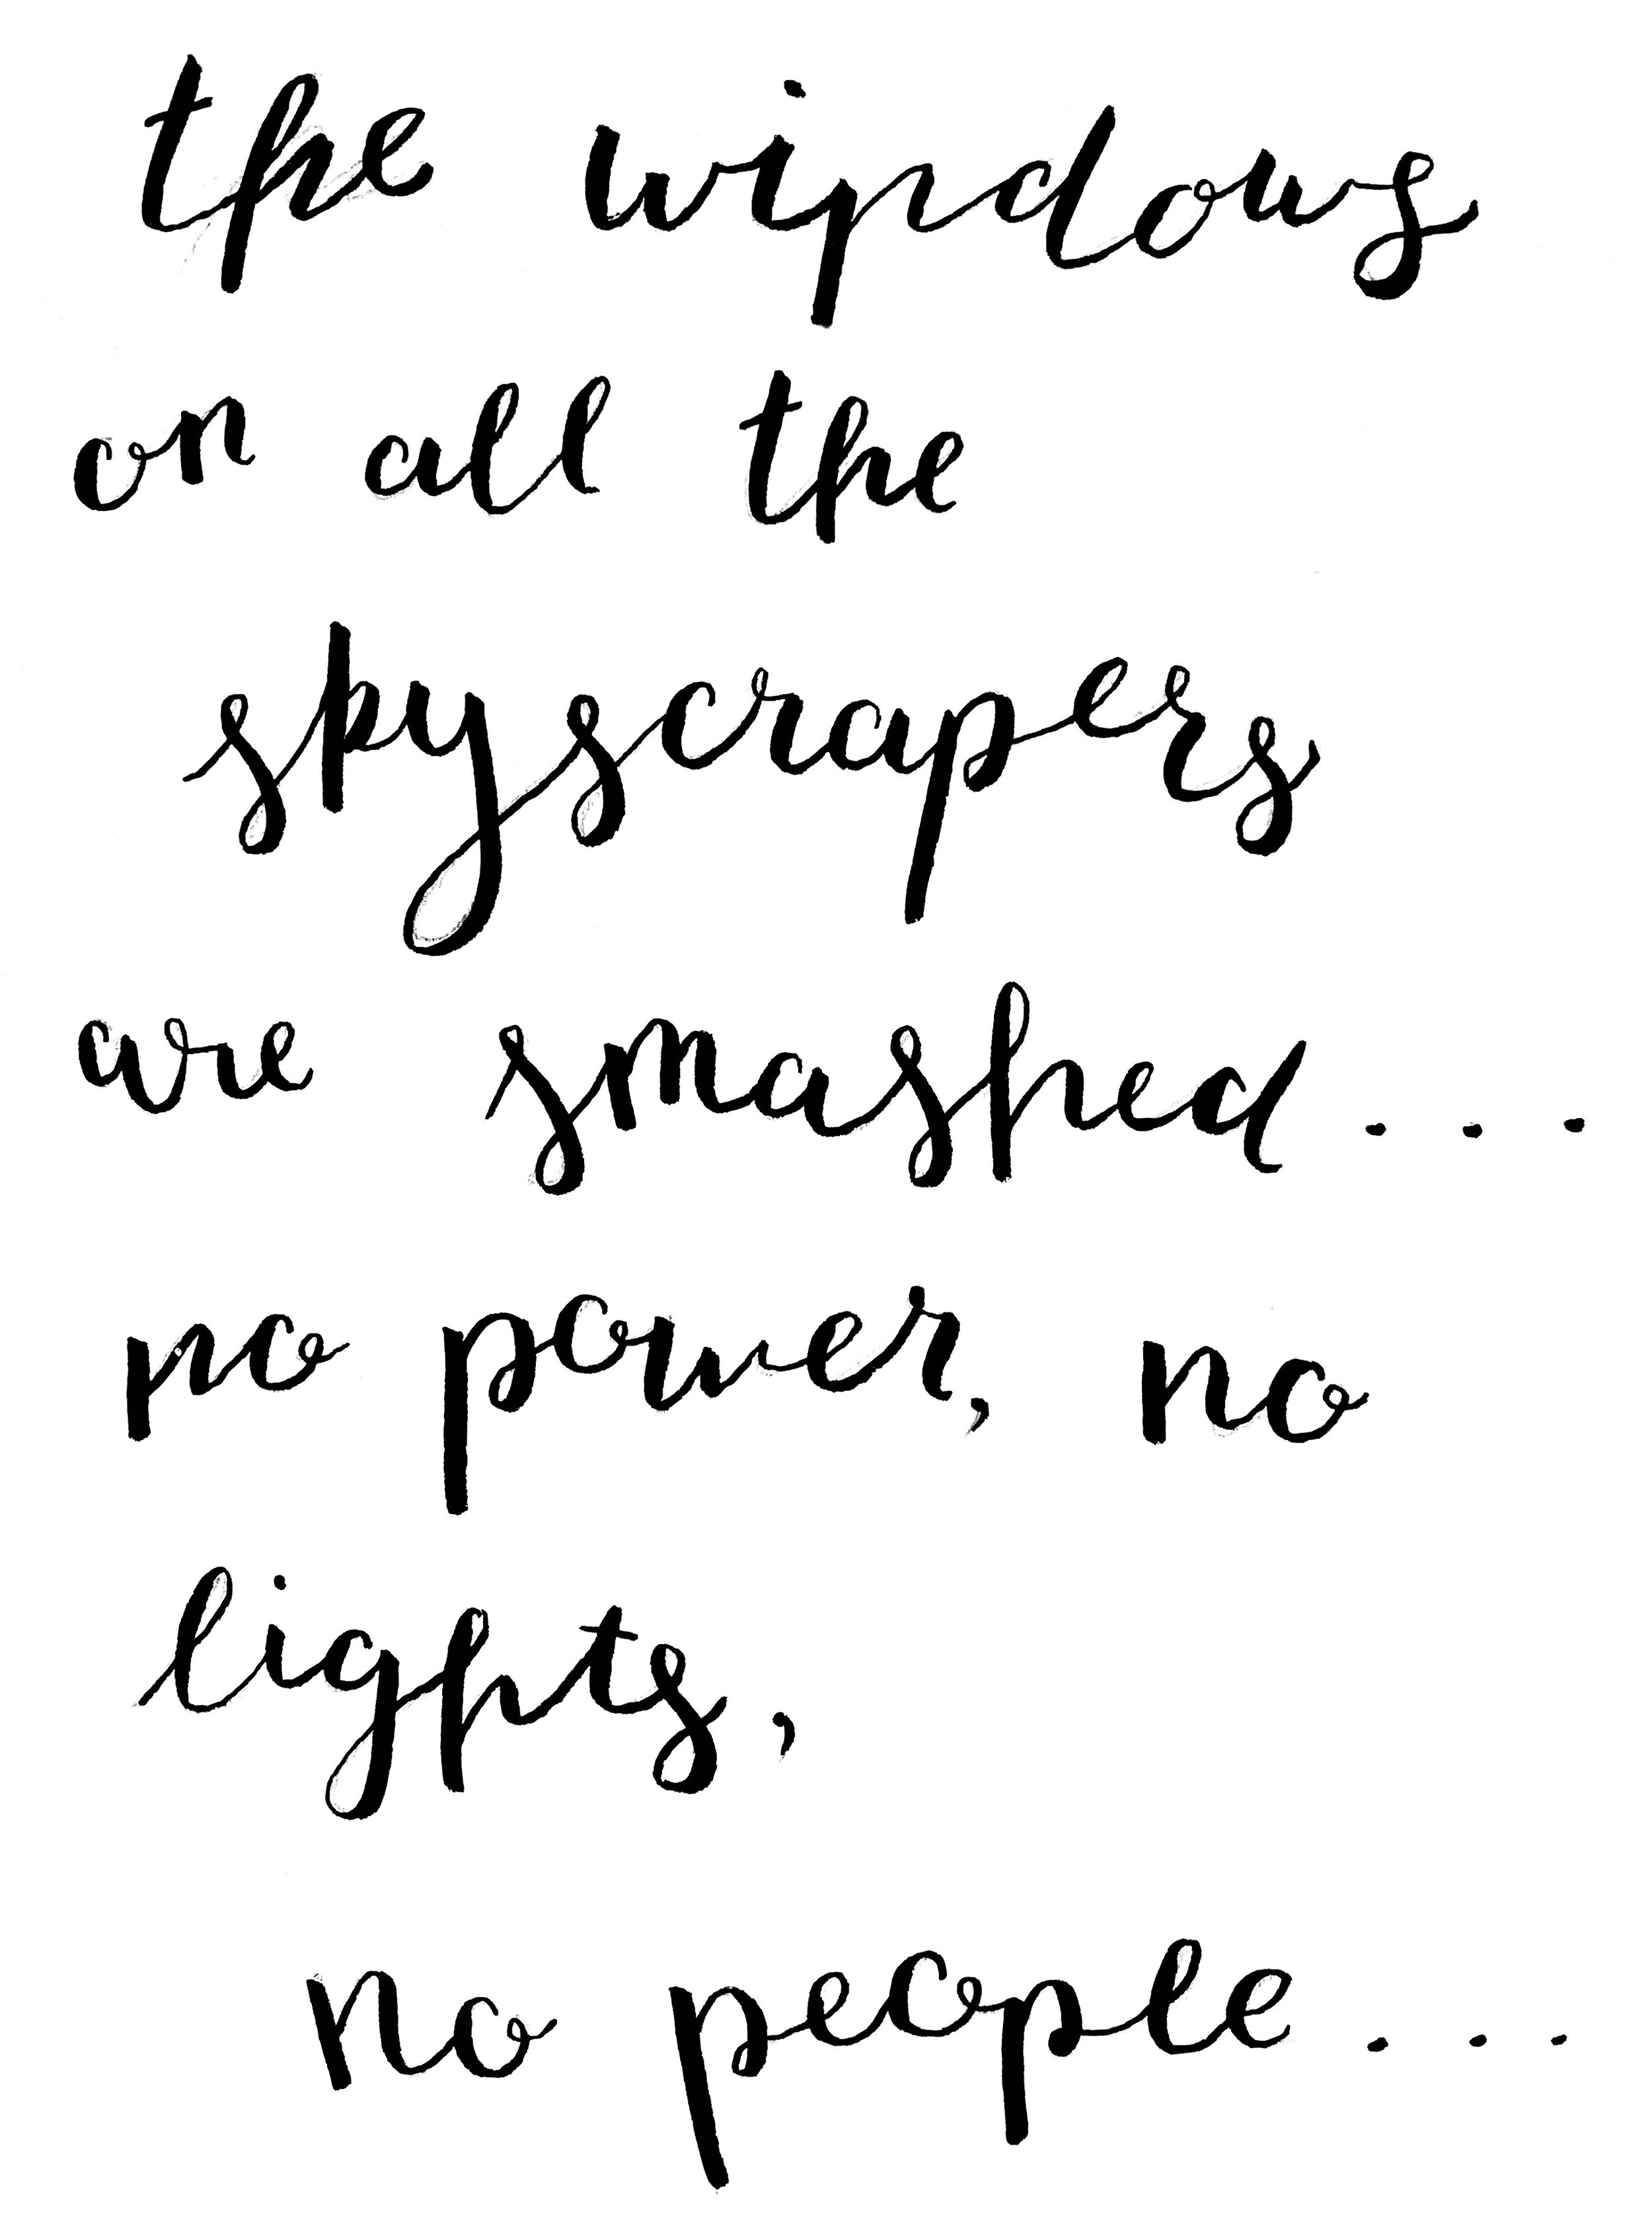 the windows
on all the
skyscrapers
are smashed...
no power, no
lights,
no people...